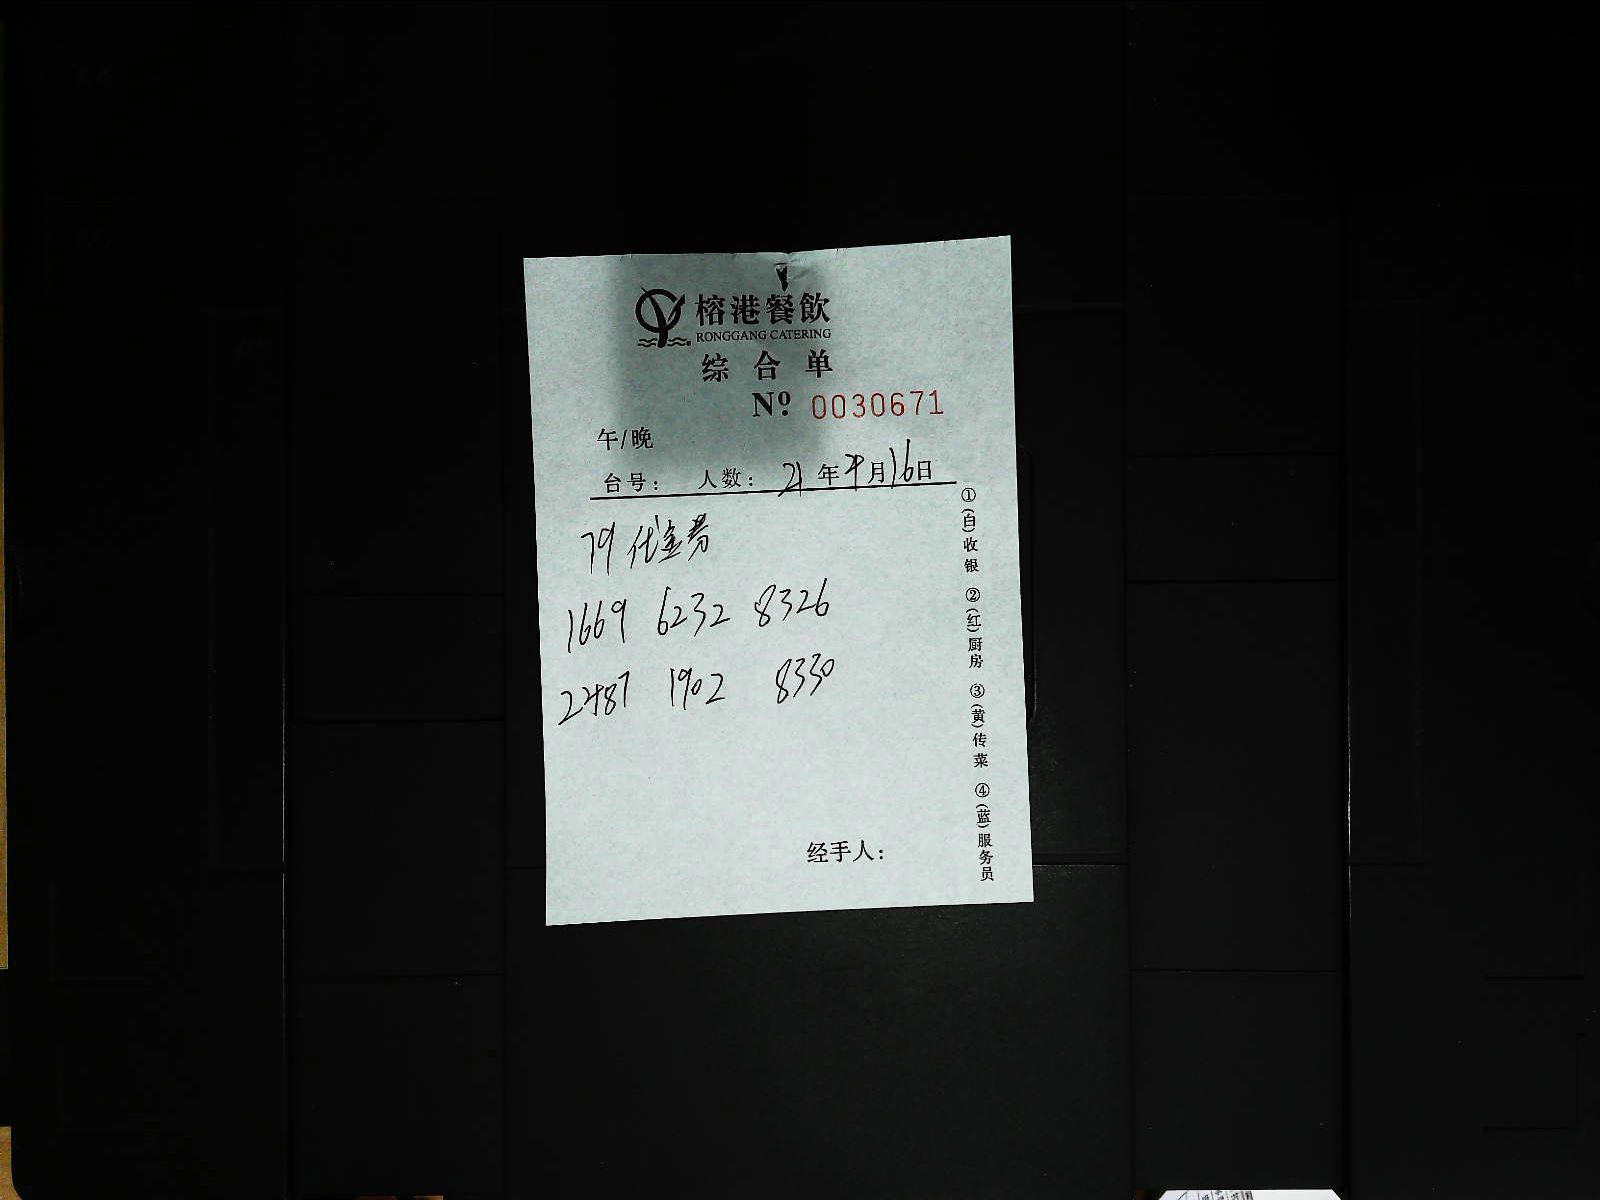 榕港餐飲
RONGGANG CATERING
综合单
Nº 0030671
午/晚
台号： 人数： 21年4月16日
79代金券
1669 6232 8326
2487 1902 8330
经手人：
①(白)收银 ②(红)厨房 ③(黄)传菜 ④(蓝)服务员